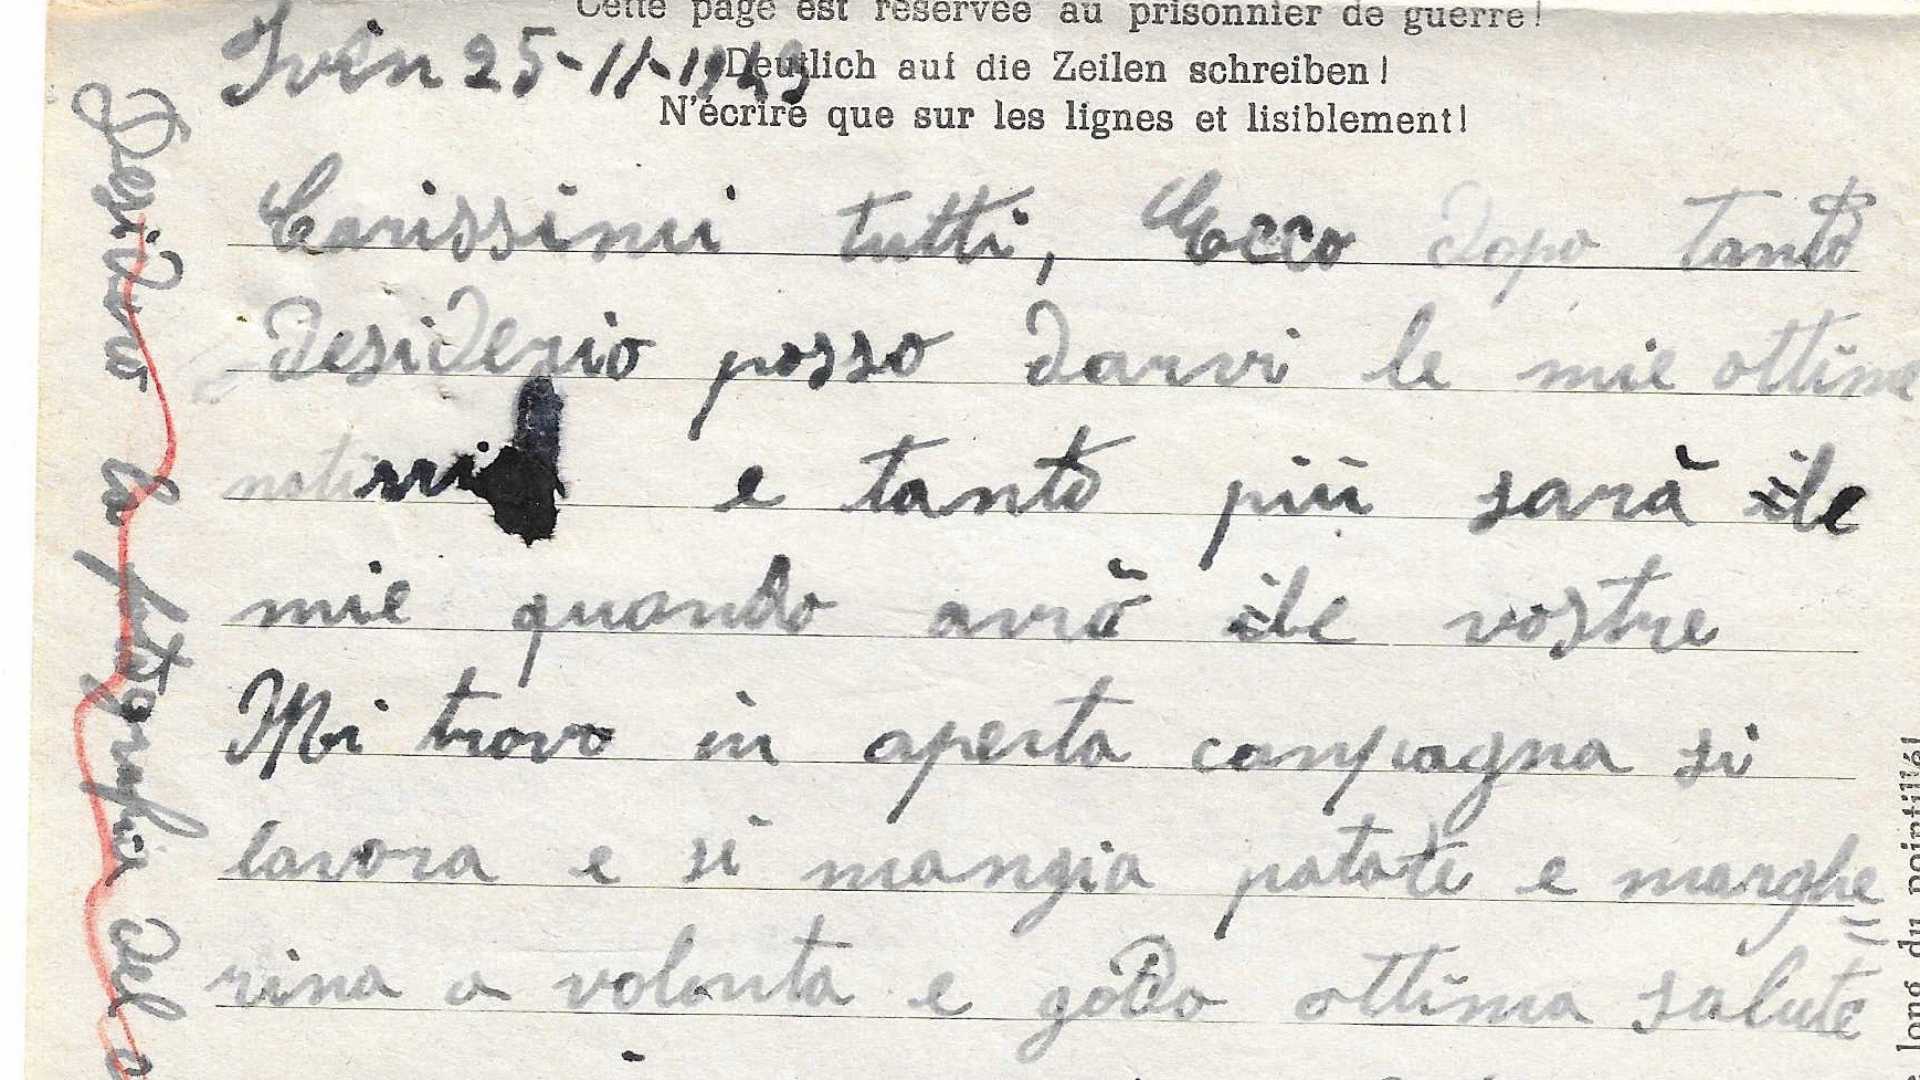 Cette page est réservée au prisonnier de guerre!
Deutlich auf die Zeilen schreiben!
N'écrire que sur les lignes et lisiblement!
25-11-1943
Carissimi tutti, Ecco dopo tanto
desiderio posso darvi le mie ottime
notizie e tanto più sarà le
mie quando avrò le vostre
Mi trovo in aperta campagna si
lavora e si mangia patate e marghe
rina a volonta e godo ottima salute
Desidero la fotografia del
long du pointillé!